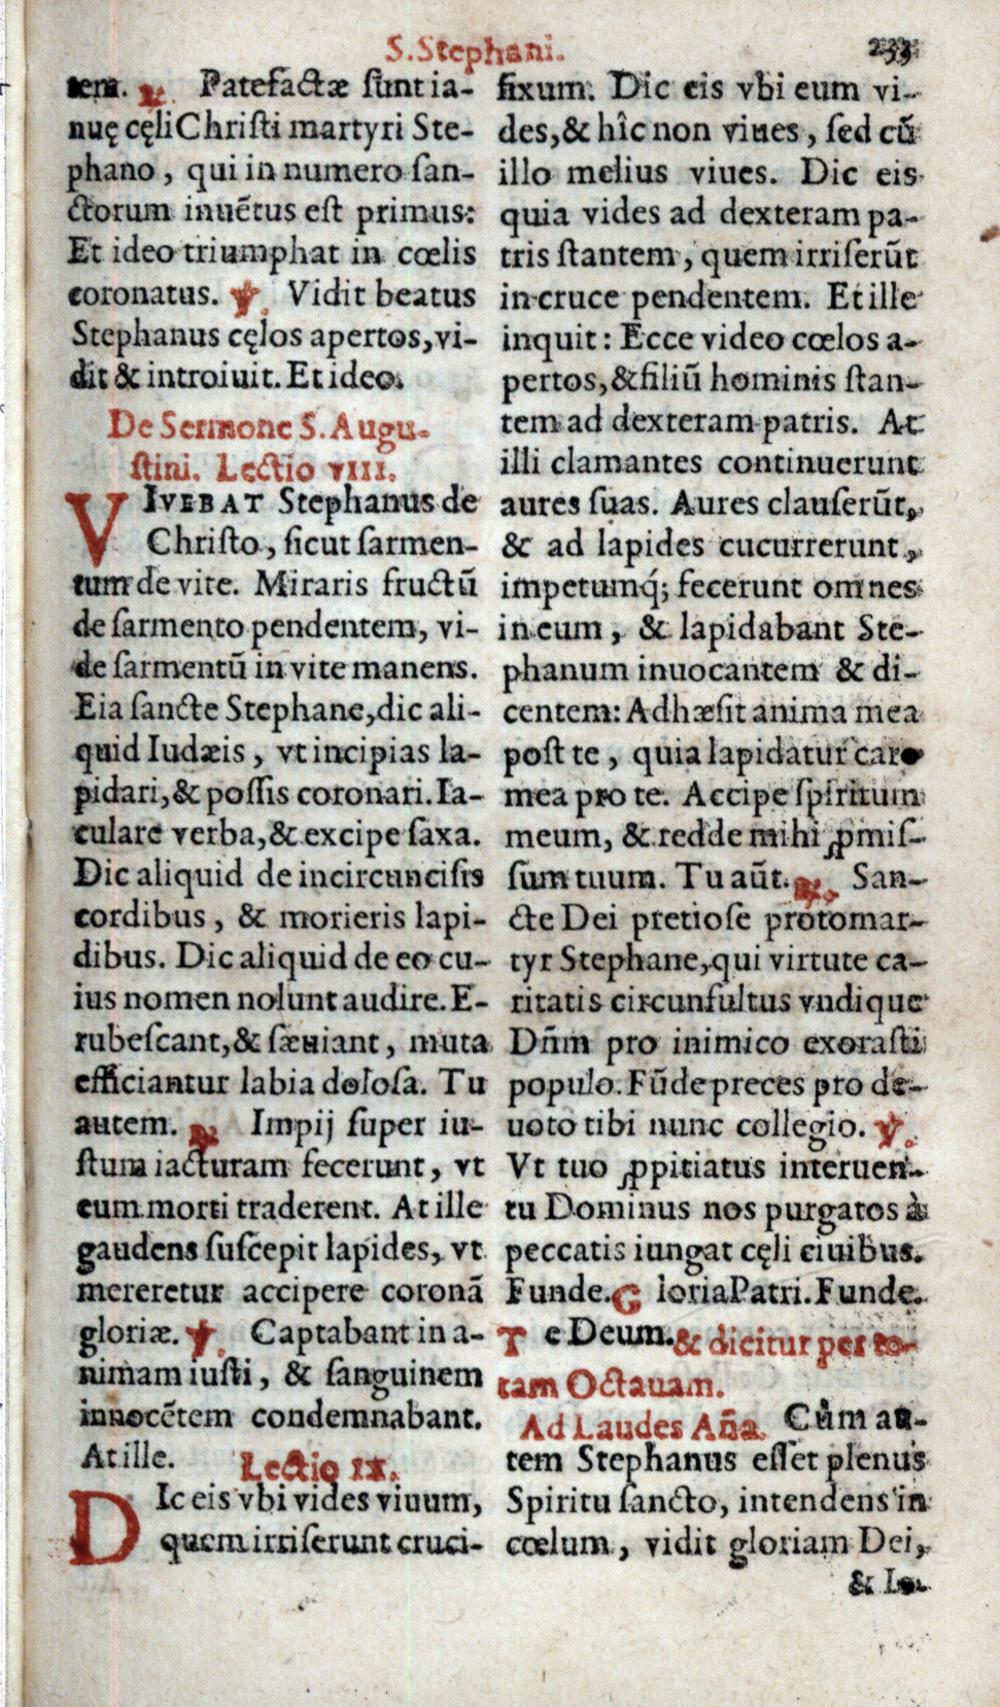 S. Stephani. 233
tem. ℟. Patefactæ ſunt ia-
nuę cęli Chriſti martyri Ste-
phano, qui in numero ſan-
ctorum inuẽtus eſt primus:
Et ideo triumphat in cœlis
coronatus. ℣. Vidit beatus
Stephanus cęlos apertos, vi-
dit & introiuit. Et ideo.
De Sermone S. Augu-
ſtini. Lectio VIII.
VIVEBAT Stephanus de
Chriſto, ſicut ſarmen-
tum de vite. Miraris fructũ
de ſarmento pendentem, vi-
de ſarmentũ in vite manens.
Eia ſancte Stephane, dic ali-
quid Iudæis, vt incipias la-
pidari, & poſſis coronari. Ia-
culare verba, & excipe ſaxa.
Dic aliquid de incircunciſis
cordibus, & morieris lapi-
dibus. Dic aliquid de eo cu-
ius nomen nolunt audire. E-
rubeſcant, & ſæuiant, muta
efficiantur labia doloſa. Tu
autem. ℟. Impij ſuper iu-
ſtum iacturam fecerunt, vt
eum morti traderent. At ille
gaudens ſuſcepit lapides, vt
mereretur accipere coronã
gloriæ. ℣. Captabant in a-
nimam iuſti, & ſanguinem
innocẽtem condemnabant.
At ille. Lectio IX.
DIc eis vbi vides viuum,
quem irriſerunt cruci-
fixum. Dic eis vbi eum vi-
des, & hîc non viues, ſed cũ
illo melius viues. Dic eis
quia vides ad dexteram pa-
tris ſtantem, quem irriſerũt
in cruce pendentem. Et ille
inquit: Ecce video cœlos a-
pertos, & filiũ hominis ſtan-
tem ad dexteram patris. At
illi clamantes continuerunt
aures ſuas. Aures clauſerũt,
& ad lapides cucurrerunt,
impetumq́; fecerunt omnes
in eum, & lapidabant Ste-
phanum inuocantem & di-
centem: Adhæſit anima mea
poſt te, quia lapidatur caro
mea pro te. Accipe ſpiritum
meum, & redde mihi ꝓmiſ-
ſum tuum. Tu aũt. ℟. San-
cte Dei pretioſe protomar-
tyr Stephane, qui virtute ca-
ritatis circunfultus vndique
Dñm pro inimico exoraſti
populo. Fũde preces pro de-
uoto tibi nunc collegio. ℣.
Vt tuo ꝓpitiatus interuen-
tu Dominus nos purgatos à
peccatis iungat cęli ciuibus.
Funde. Gloria Patri. Funde.
Te Deum. & dicitur per to-
tam Octauam.
Ad Laudes Aña. Cùm au-
tem Stephanus eſſet plenus
Spiritu ſancto, intendens in
cœlum, vidit gloriam Dei,
& Ie-